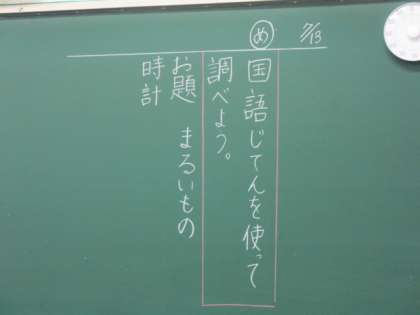 7/13
め
国語じてんを使って
調べよう。
お題 まるいもの
時計